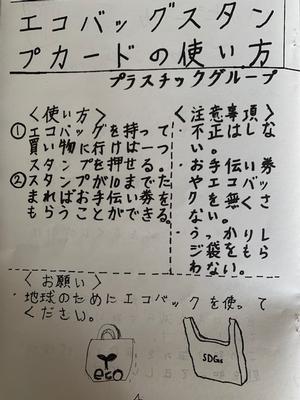 エコバッグスタン
プカードの使い方
プラスチックグループ
〈使い方〉
①エコバッグを持って
買い物に行けば一つ
スタンプを押せる。
②スタンプが10までた
まればお手伝い券を
もらうことができる。
〈注意事項〉
・不正はしな
い。
・お手伝い券
やエコバッ
クを無くさ
ない。
・うっかりレ
ジ袋をもら
わない。
〈お願い〉
・地球のためにエコバックを使って
ください。
eco
SDGs